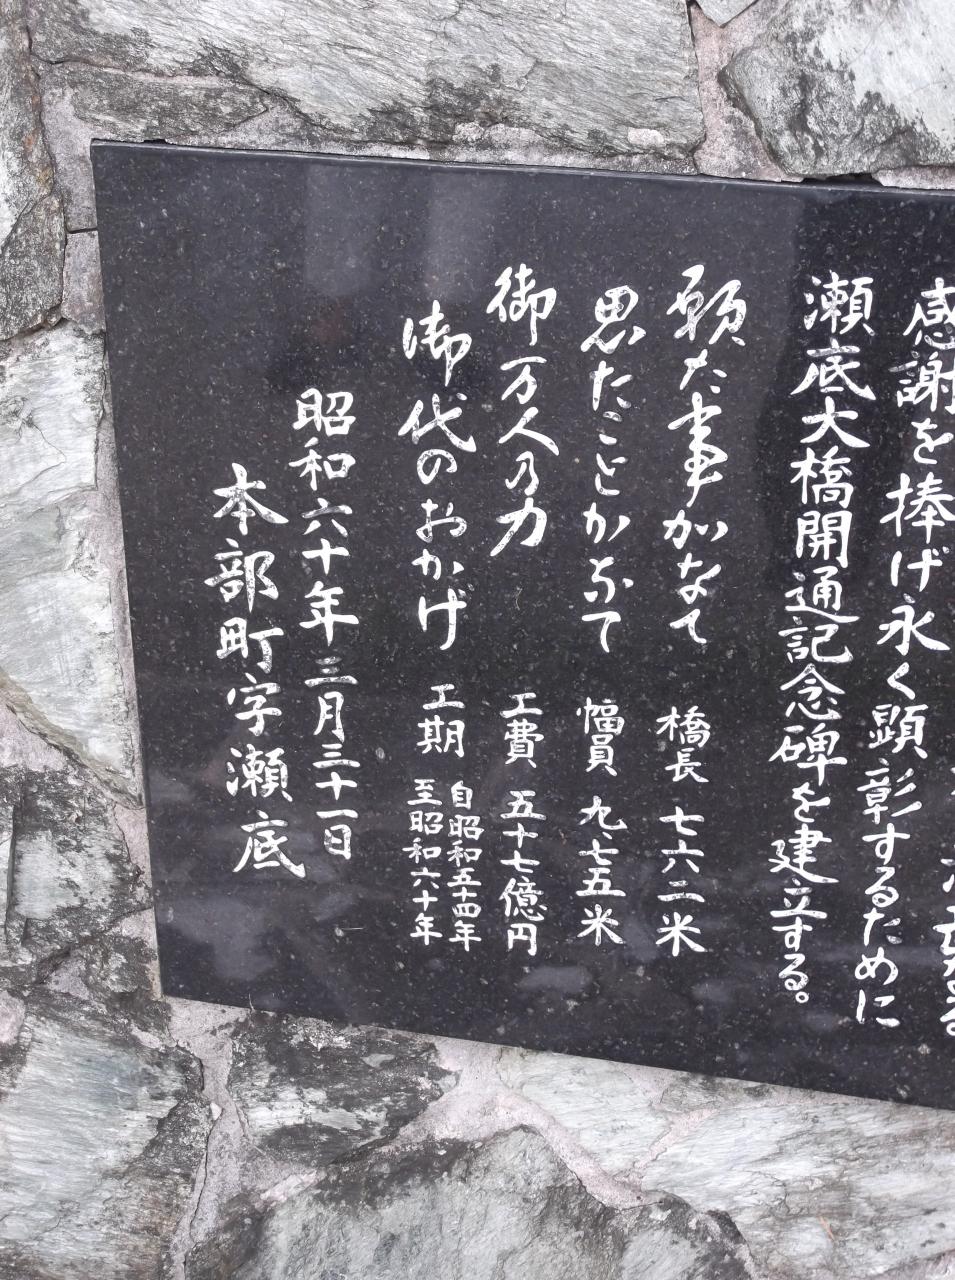 感謝を捧げ永く顕彰するために
瀬底大橋開通記念碑を建立する。
願た事かなて 橋長 七六二米
思たことかなて 幅員 九、七五米
御万人乃力 工費 五十七億円
御代のおかげ 工期 自昭和五十四年
至昭和六十年
昭和六十年三月三十一日
本部町字瀬底